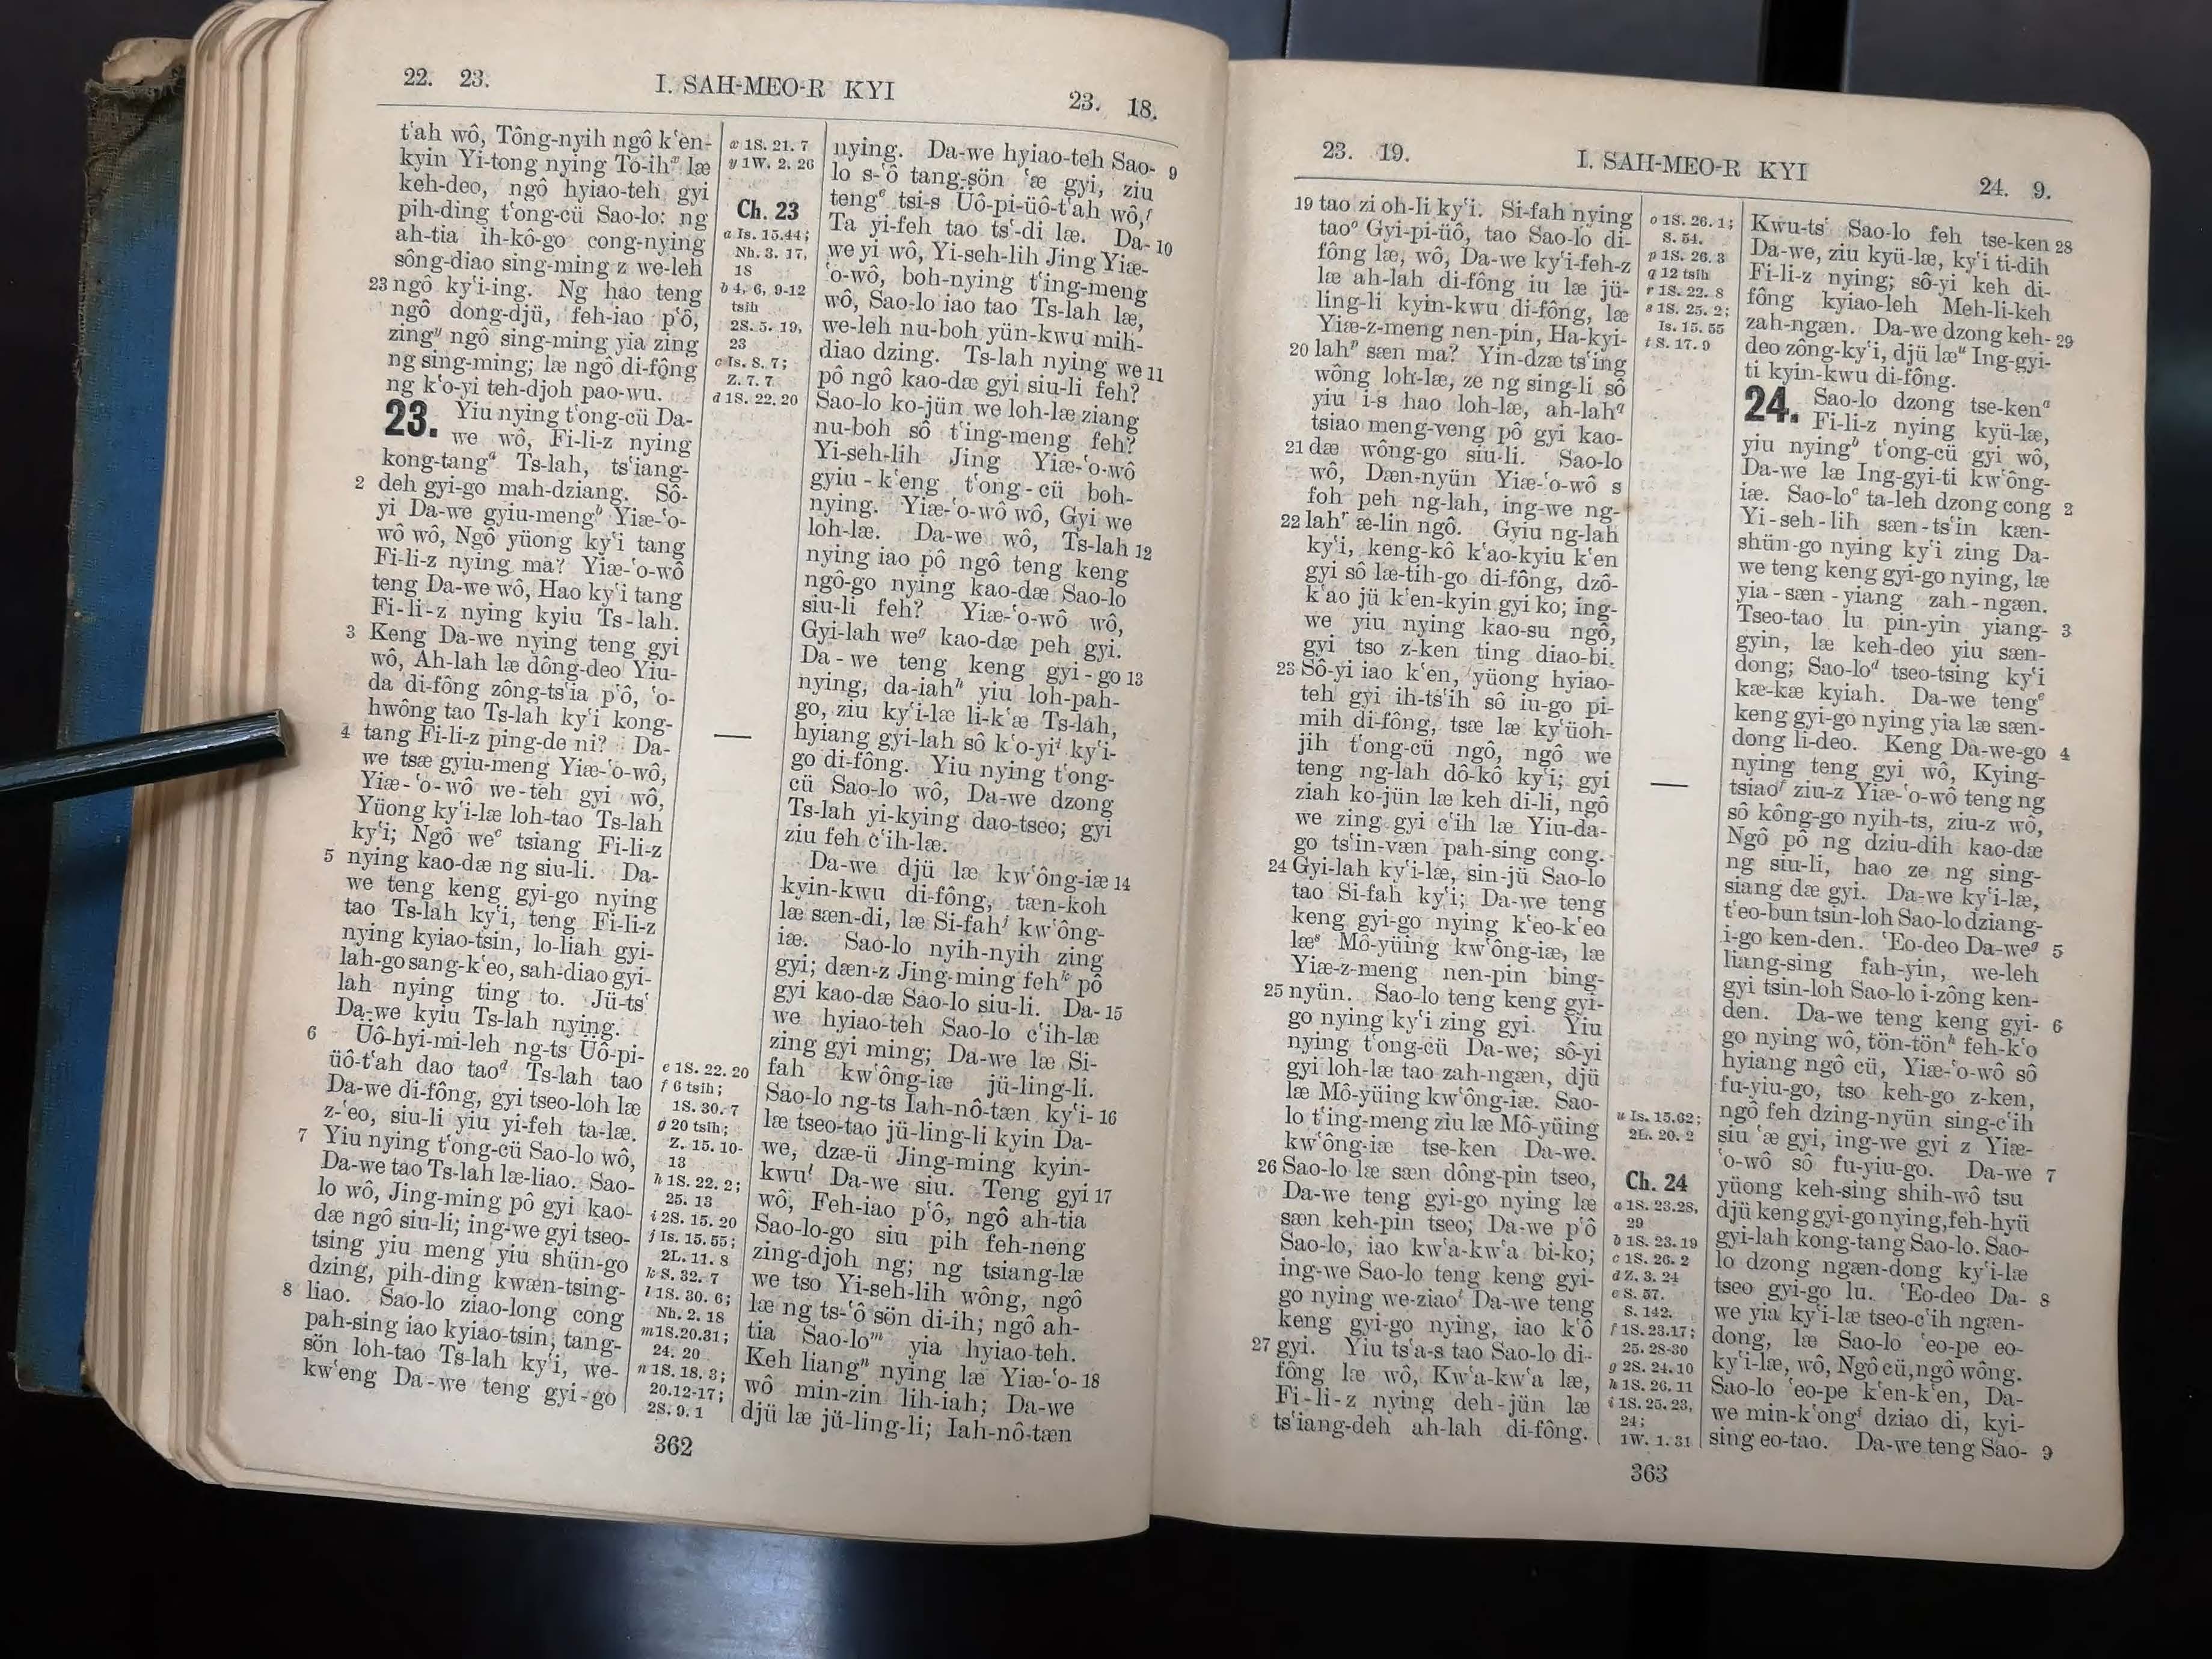 22. 23.
I. SAH-MEO-R KYI
23. 18.
t‘ah wô, Tông-nyih ngô k‘en-
kyin Yi-tong nying To-ihˣ læ
keh-deo, ngô hyiao-teh gyi
pih-ding t‘ong-cü Sao-lo: ng
ah-tia ih-kô-go cong-nying
sông-diao sing-ming z we-leh
23 ngô ky‘i-ing. Ng hao teng
ngô dong-djü, feh-iao p‘ô,
zingʸ ngô sing-ming yia zing
ng sing-ming; læ ngô di-fông
ng k‘o-yi teh-djoh pao-wu.
23. Yiu nying t‘ong-cü Da-
we wô, Fi-li-z nying
kong-tangᵃ Ts-lah, ts‘iang-
deh gyi-go mah-dziang. Sô-
2 yi Da-we gyiu-mengᵇ Yiæ-‘o-
wô wô, Ngô yüong ky‘i tang
Fi-li-z nying ma? Yiæ-‘o-wô
teng Da-we wô, Hao ky‘i tang
Fi-li-z nying kyiu Ts-lah.
3 Keng Da-we nying teng gyi
wô, Ah-lah læ dông-deo Yiu-
da di-fông zông-ts‘ia p‘ô, ‘o-
hwông tao Ts-lah ky‘i kong-
4 tang Fi-li-z ping-de ni? Da-
we tsæ gyiu-meng Yiæ-‘o-wô,
Yiæ-‘o-wô we-teh gyi wô,
Yüong ky‘i-læ loh-tao Ts-lah
ky‘i; Ngô weᶜ tsiang Fi-li-z
5 nying kao-dæ ng siu-li. Da-
we teng keng gyi-go nying
tao Ts-lah ky‘i, teng Fi-li-z
nying kyiao-tsin, lo-liah gyi-
lah-go sang-k‘eo, sah-diao gyi-
lah nying ting to. Jü-ts‘
Da-we kyiu Ts-lah nying.
6 Üô-hyi-mi-leh ng-ts Üô-pi-
üô-t‘ah dao taoᵈ Ts-lah tao
Da-we di-fông, gyi tseo-loh læ
z-‘eo, siu-li yiu yi-feh ta-læ.
7 Yiu nying t‘ong-cü Sao-lo wô,
Da-we tao Ts-lah læ-liao. Sao-
lo wô, Jing-ming pô gyi kao-
dæ ngô siu-li; ing-we gyi tseo-
tsing yiu meng yiu shün-go
dzing, pih-ding kwæn-tsing-
8 liao. Sao-lo ziao-long cong
pah-sing iao kyiao-tsin, tang-
sön loh-tao Ts-lah ky‘i, we-
kw‘eng Da-we teng gyi-go
x 1S. 21. 7
y 1W. 2. 26
Ch. 23
a Is. 15.44;
Nh. 3. 17,
18
b 4, 6, 9-12
tsih
2S. 5. 19,
23
c Is. 8. 7;
Z. 7. 7
d 1S. 22. 20
e 1S. 22. 20
f 6 tsih;
1S. 30. 7
g 20 tsih;
Z. 15. 10-
13
h 1S. 22. 2;
25. 13
i 2S. 15. 20
j Is. 15. 55;
2L. 11. 8
k S. 32. 7
l 1S. 30. 6;
Nh. 2. 18
m 1S.20.31;
24. 20
n 1S. 18. 3;
20.12-17;
2S. 9. 1
nying. Da-we hyiao-teh Sao- 9
lo s-‘ô tang-sön ‘æ gyi, ziu
tengᵉ tsi-s Üô-pi-üô-t‘ah wô,ᶠ
Ta yi-feh tao ts‘-di læ. Da- 10
we yi wô, Yi-seh-lih Jing Yiæ-
‘o-wô, boh-nying t‘ing-meng
wô, Sao-lo iao tao Ts-lah læ,
we-leh nu-boh yün-kwu mih-
diao dzing. Ts-lah nying we 11
pô ngô kao-dæ gyi siu-li feh?
Sao-lo ko-jün we loh-læ ziang
nu-boh sô t‘ing-meng feh?
Yi-seh-lih Jing Yiæ-‘o-wô
gyiu-k‘eng t‘ong-cü boh-
nying. Yiæ-‘o-wô wô, Gyi we
loh-læ. Da-we wô, Ts-lah 12
nying iao pô ngô teng keng
ngô-go nying kao-dæ Sao-lo
siu-li feh? Yiæ-‘o-wô wô,
Gyi-lah weᵍ kao-dæ peh gyi.
Da-we teng keng gyi-go 13
nying, da-iahʰ yiu loh-pah-
go, ziu ky‘i-læ li-k‘æ Ts-lah,
hyiang gyi-lah sô k‘o-yiⁱ ky‘i-
go di-fông. Yiu nying t‘ong-
cü Sao-lo wô, Da-we dzong
Ts-lah yi-kying dao-tseo; gyi
ziu feh c‘ih-læ.
Da-we djü læ kw‘ông-iæ 14
kyin-kwu di-fông, tæn-koh
læ sæn-di, læ Si-fahʲ kw‘ông-
iæ. Sao-lo nyih-nyih zing
gyi; dæn-z Jing-ming fehᵏ pô
gyi kao-dæ Sao-lo siu-li. Da- 15
we hyiao-teh Sao-lo c‘ih-læ
zing gyi ming; Da-we læ Si-
fah kw‘ông-iæ jü-ling-li.
Sao-lo ng-ts Iah-nô-tæn ky‘i- 16
læ tseo-tao jü-ling-li kyin Da-
we, dzæ-ü Jing-ming kyin-
kwuˡ Da-we siu. Teng gyi 17
wô, Feh-iao p‘ô, ngô ah-tia
Sao-lo-go siu pih feh-neng
zing-djoh ng; ng tsiang-læ
we tso Yi-seh-lih wông, ngô
læ ng ts-‘ô sön di-ih; ngô ah-
tia Sao-loᵐ yia hyiao-teh.
Keh liangⁿ nying læ Yiæ-‘o- 18
wô min-zin lih-iah; Da-we
djü læ jü-ling-li; Iah-nô-tæn
362
23. 19.
I. SAH-MEO-R KYI
24. 9.
19 tao zi oh-li ky‘i. Si-fah nying
taoᵒ Gyi-pi-üô, tao Sao-lo di-
fông læ, wô, Da-we ky‘i-feh-z
læ ah-lah di-fông iu læ jü-
ling-li kyin-kwu di-fông, læ
Yiæ-z-meng nen-pin, Ha-kyi-
20 lahᵖ sæn ma? Yin-dzæ ts‘ing
wông loh-læ, ze ng sing-li sô
yiu i-s hao loh-læ, ah-lah𐞥
tsiao meng-veng pô gyi kao-
21 dæ wông-go siu-li. Sao-lo
wô, Dæn-nyün Yiæ-‘o-wô s
foh peh ng-lah, ing-we ng-
22 lahʳ æ-lin ngô. Gyiu ng-lah
ky‘i, keng-kô k‘ao-kyiu k‘en
gyi sô læ-tih-go di-fông, dzô-
k‘ao jü k‘en-kyin gyi ko; ing-
we yiu nying kao-su ngô,
gyi tso z-ken ting diao-bi.
23 Sô-yi iao k‘en, yüong hyiao-
teh gyi ih-ts‘ih sô iu-go pi-
mih di-fông, tsæ læ ky‘üoh-
jih t‘ong-cü ngô, ngô we
teng ng-lah dô-kô ky‘i; gyi
ziah ko-jün læ keh di-li, ngô
we zing gyi c‘ih læ Yiu-da-
go ts‘in-væn pah-sing cong.
24 Gyi-lah ky‘i-læ, sin-jü Sao-lo
tao Si-fah ky‘i; Da-we teng
keng gyi-go nying k‘eo-k‘eo
læˢ Mô-yüing kw‘ông-iæ, læ
Yiæ-z-meng nen-pin bing-
25 nyün. Sao-lo teng keng gyi-
go nying ky‘i zing gyi. Yiu
nying t‘ong-cü Da-we; sô-yi
gyi loh-læ tao zah-ngæn, djü
læ Mô-yüing kw‘ông-iæ. Sao-
lo t‘ing-meng ziu læ Mô-yüing
kw‘ông-iæ tse-ken Da-we.
26 Sao-lo læ sæn dông-pin tseo,
Da-we teng gyi-go nying læ
sæn keh-pin tseo; Da-we p‘ô
Sao-lo, iao kw‘a-kw‘a bi-ko;
ing-we Sao-lo teng keng gyi-
go nying we-ziaoᵗ Da-we teng
keng gyi-go nying, iao k‘ô
27 gyi. Yiu ts‘a-s tao Sao-lo di-
fông læ wô, Kw‘a-kw‘a læ,
Fi-li-z nying deh-jün læ
ts‘iang-deh ah-lah di-fông.
o 1S. 26. 1;
S. 54.
p 1S. 26. 3
q 12 tsih
r 1S. 22. 8
s 1S. 25. 2;
Is. 15. 55
t S. 17. 9
u Is. 15.62;
2L. 20. 2
Ch. 24
a 1S. 23.28,
29
b 1S. 23.19
c 1S. 26. 2
d Z. 3. 24
e S. 57.
S. 142.
f 1S. 23.17;
25. 28-30
g 2S. 24.10
h 1S. 26. 11
i 1S. 25. 23,
24;
1W. 1. 31
Kwu-ts‘ Sao-lo feh tse-ken 28
Da-we, ziu kyü-læ, ky‘i ti-dih
Fi-li-z nying; sô-yi keh di-
fông kyiao-leh Meh-li-keh
zah-ngæn. Da-we dzong keh- 29
deo zông-ky‘i, djü læᵘ Ing-gyi-
ti kyin-kwu di-fông.
24. Sao-lo dzong tse-kenᵃ
Fi-li-z nying kyü-læ,
yiu nyingᵇ t‘ong-cü gyi wô,
Da-we læ Ing-gyi-ti kw‘ông-
iæ. Sao-loᶜ ta-leh dzong cong 2
Yi-seh-lih sæn-ts‘in kæn-
shün-go nying ky‘i zing Da-
we teng keng gyi-go nying, læ
yia-sæn-yiang zah-ngæn.
Tseo-tao lu pin-yin yiang- 3
gyin, læ keh-deo yiu sæn-
dong; Sao-loᵈ tseo-tsing ky‘i
kæ-kæ kyiah. Da-we tengᵉ
keng gyi-go nying yia læ sæn-
dong li-deo. Keng Da-we-go 4
nying teng gyi wô, Kying-
tsiaoᶠ ziu-z Yiæ-‘o-wô teng ng
sô kông-go nyih-ts, ziu-z wô,
Ngô pô ng dziu-dih kao-dæ
ng siu-li, hao ze ng sing-
siang dæ gyi. Da-we ky‘i-læ,
t‘eo-bun tsin-loh Sao-lo dziang-
i-go ken-den. ‘Eo-deo Da-weᵍ 5
liang-sing fah-yin, we-leh
gyi tsin-loh Sao-lo i-zông ken-
den. Da-we teng keng gyi- 6
go nying wô, tön-tönʰ feh-k‘o
hyiang ngô cü, Yiæ-‘o-wô sô
fu-yiu-go, tso keh-go z-ken,
ngô feh dzing-nyün sing-c‘ih
siu ‘æ gyi, ing-we gyi z Yiæ-
‘o-wô sô fu-yiu-go. Da-we 7
yüong keh-sing shih-wô tsu
djü keng gyi-go nying, feh-hyü
gyi-lah kong-tang Sao-lo. Sao-
lo dzong ngæn-dong ky‘i-læ
tseo gyi-go lu. ‘Eo-deo Da- 8
we yia ky‘i-læ tseo-c‘ih ngæn-
dong, læ Sao-lo ‘eo-pe eo-
ky‘i-læ, wô, Ngô cü, ngô wông.
Sao-lo ‘eo-pe k‘en-k‘en, Da-
we min-k‘ongⁱ dziao di, kyi-
sing eo-tao. Da-we teng Sao- 9
363